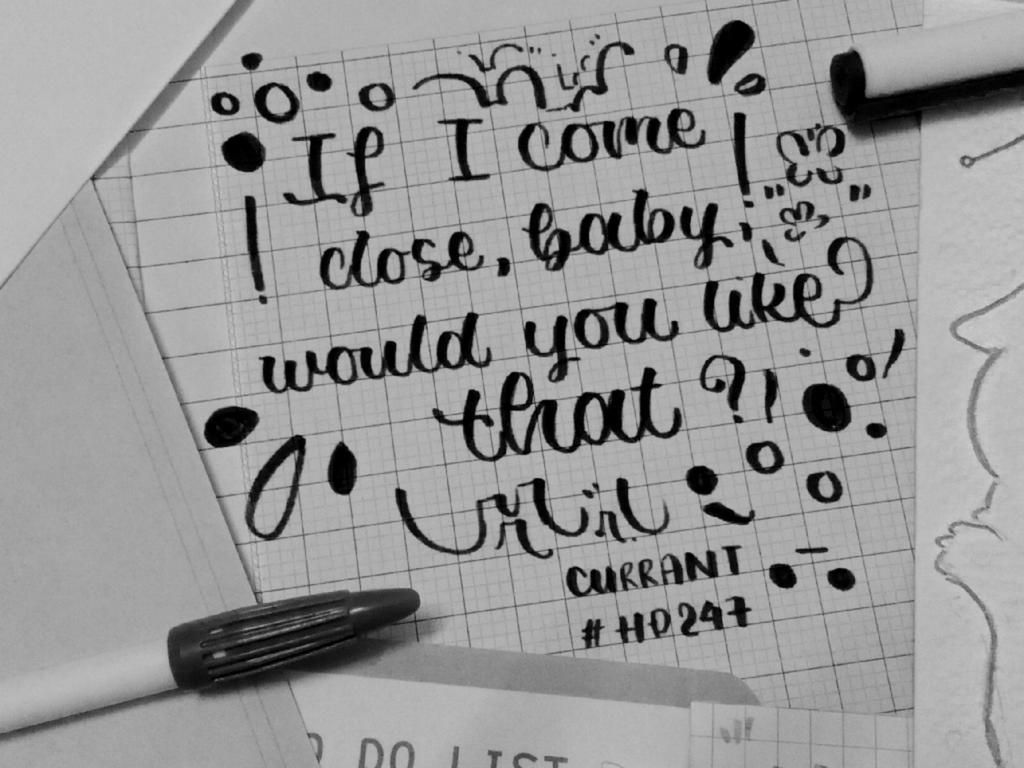 If I come !
! close, baby!
would you like?
that ?!
CURRANT
#HD247
DO LIST